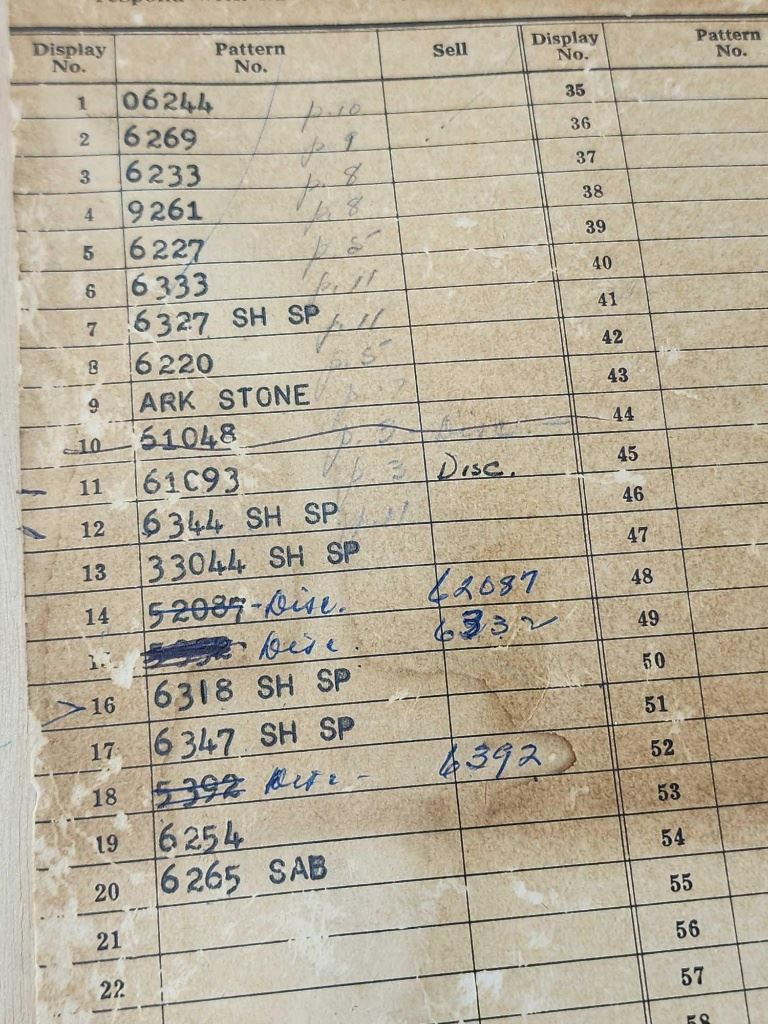 Display No. Pattern No. Sell Display No. Pattern No.
1 06244 p.10 35
2 6269 p.9 36
3 6233 p.8 37
4 9261 p.8 38
5 6227 p.5 39
6 6333 p.11 40
7 6327 SH SP p.11 41
8 6220 p.5 42
9 ARK STONE 43
10 51048 44
11 61C93 p.3 Disc. 45
12 6344 SH SP p.11 46
13 33044 SH SP 47
14 52087 - Disc. 62087 48
Disc. 6332 49
16 6318 SH SP 50
17 6347 SH SP 51
18 5392 Disc - 6392 52
19 6254 53
20 6265 SAB 54
21 55
22 56
57
58